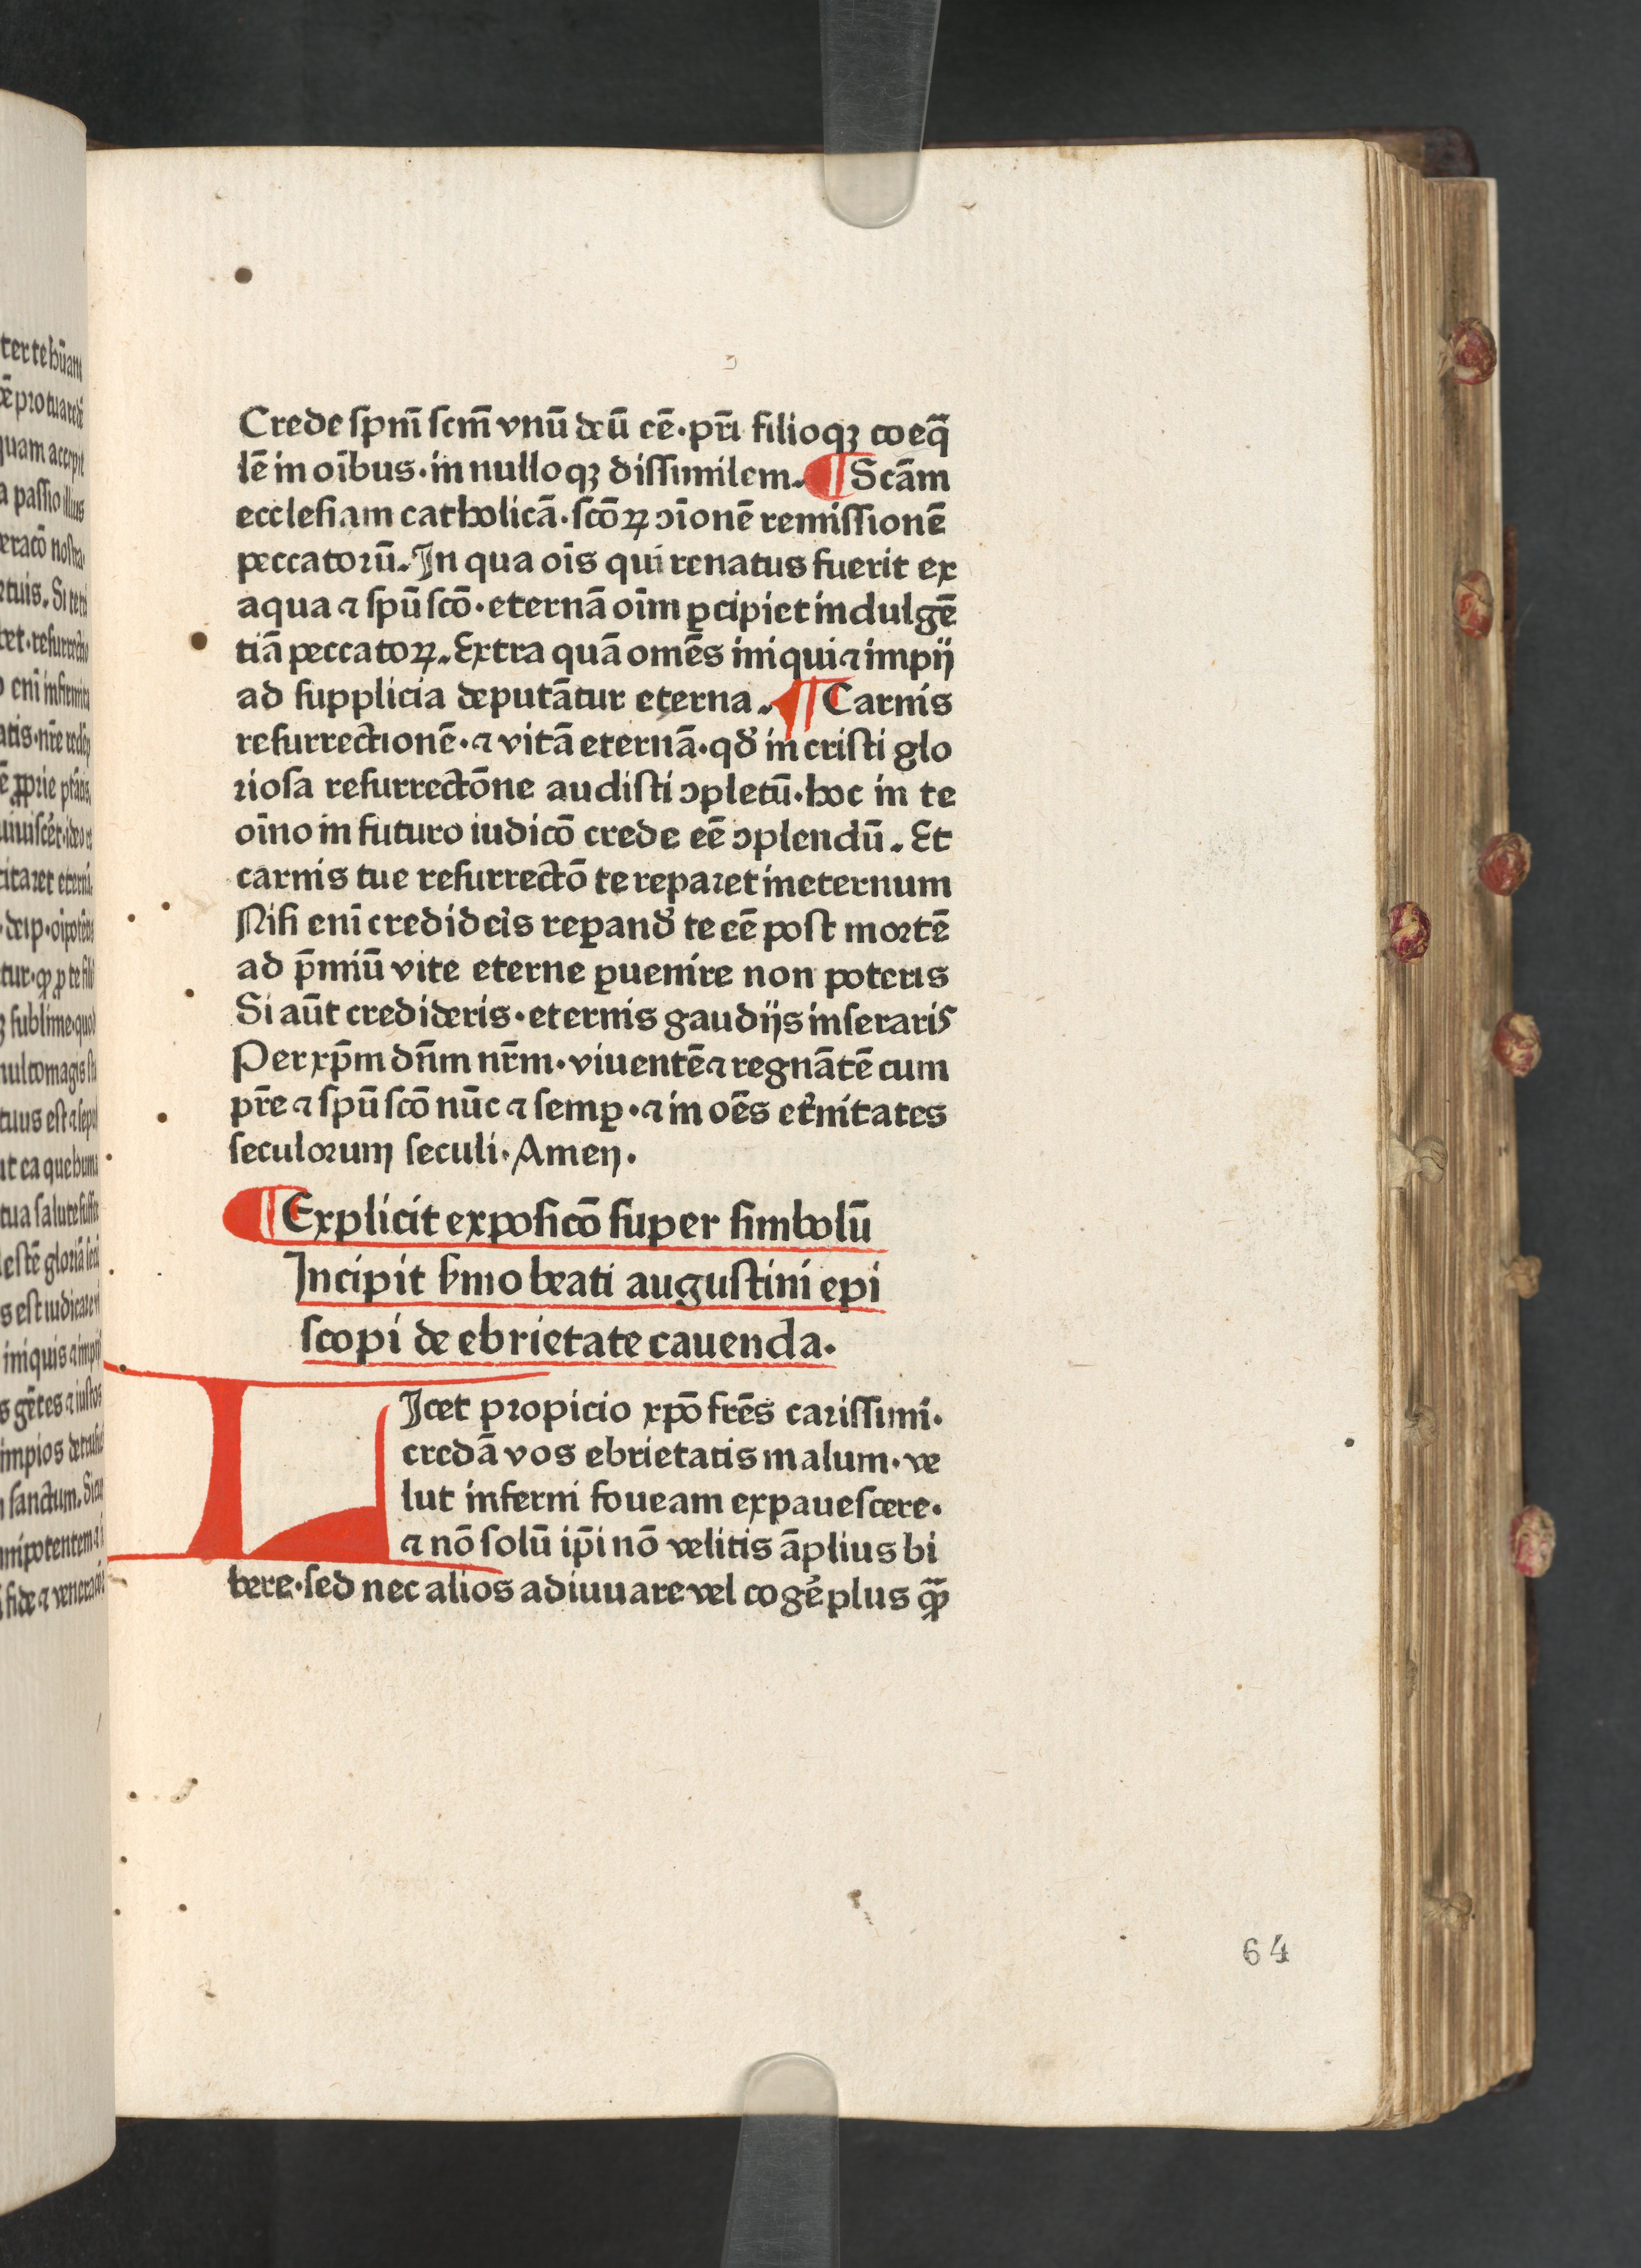 Crede ſpm̄ ſcm̄ vnū deū eē·pr̄i filioqꝫ coeq̄
lē in oībus·in nulloqꝫ diſſimilem. ¶ Scām
eccleſiam catholicā·ſcōꝝ ɔīonē remiſſionē
peccatoꝛū. In qua oīs qui renatus fuerit ex
aqua ⁊ ſpū ſcō·eternā oīm ꝑcipiet indulgē
tiā peccatoꝝ. Extra quā omēs iniqui ⁊ impij
ad ſupplicia deputātur eterna. ¶ Carnis
reſurrectionē·⁊ vitā eternā·qđ in criſti glo
rioſa reſurrectōne audiſti ɔpletū·hoc in te
oīno in futuro iudicō crede eē ɔplendū. Et
carnis tue reſurrectō te reparet in eternum
Niſi enī credideis reꝑand̛ te eē poſt moꝛtē
ad p̄miū vite eterne ꝑuenire non poteris
Si aūt credideris·eternis gaudijs inſeraris
Per xp̄m dn̄m nr̄m·viuentē ⁊ regnātē cum
pr̄e ⁊ ſpū ſcō nūc ⁊ ſemꝑ·⁊ in oēs et̛nitates
ſeculoꝛum ſeculi·Amen.
¶ Explicit expoſicō ſuper ſimbolū
Incipit ẜmo beati auguſtini epi
ſcopi de ebrietate cauenda.
LIcet propicio xp̄o fr̄es cariſſimi·
credā vos ebrietatis malum·ve
lut inferni foueam expaueſcere·
⁊ nō ſolū ip̄i nō velitis āplius bi
bere·ſed nec alios adiuuare vel cogē plus qͣꝫ
64